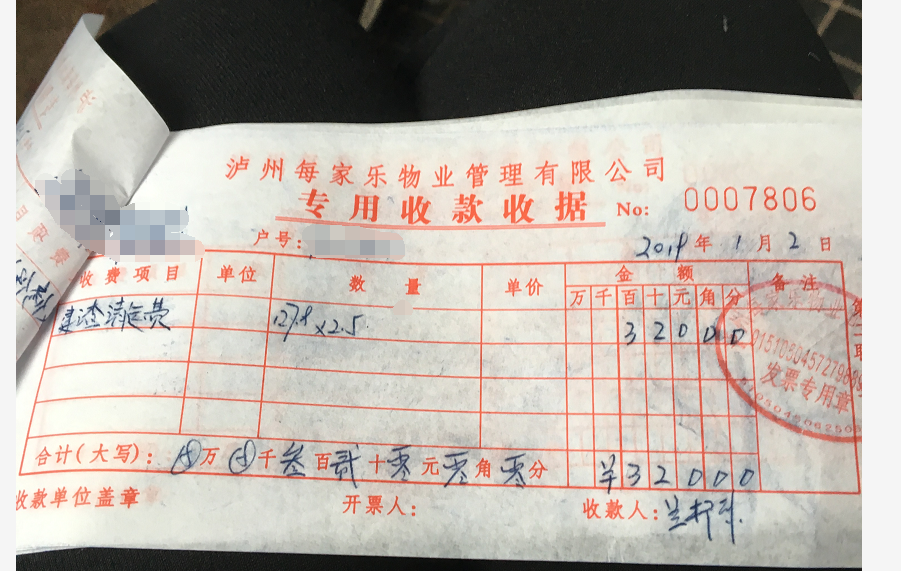 泸州每家乐物业管理有限公司
专用收款收据 No: 0007806
户号: 2019年1月2日
收费项目 单位 数量 单价 金额 备注
万千百十元角分
建渣清运费 127.8×2.5 32000
发票专用章
合计(大写): ⊗万⊗千叁百贰十零元零角零分 ¥32000
收款单位盖章 开票人: 收款人: